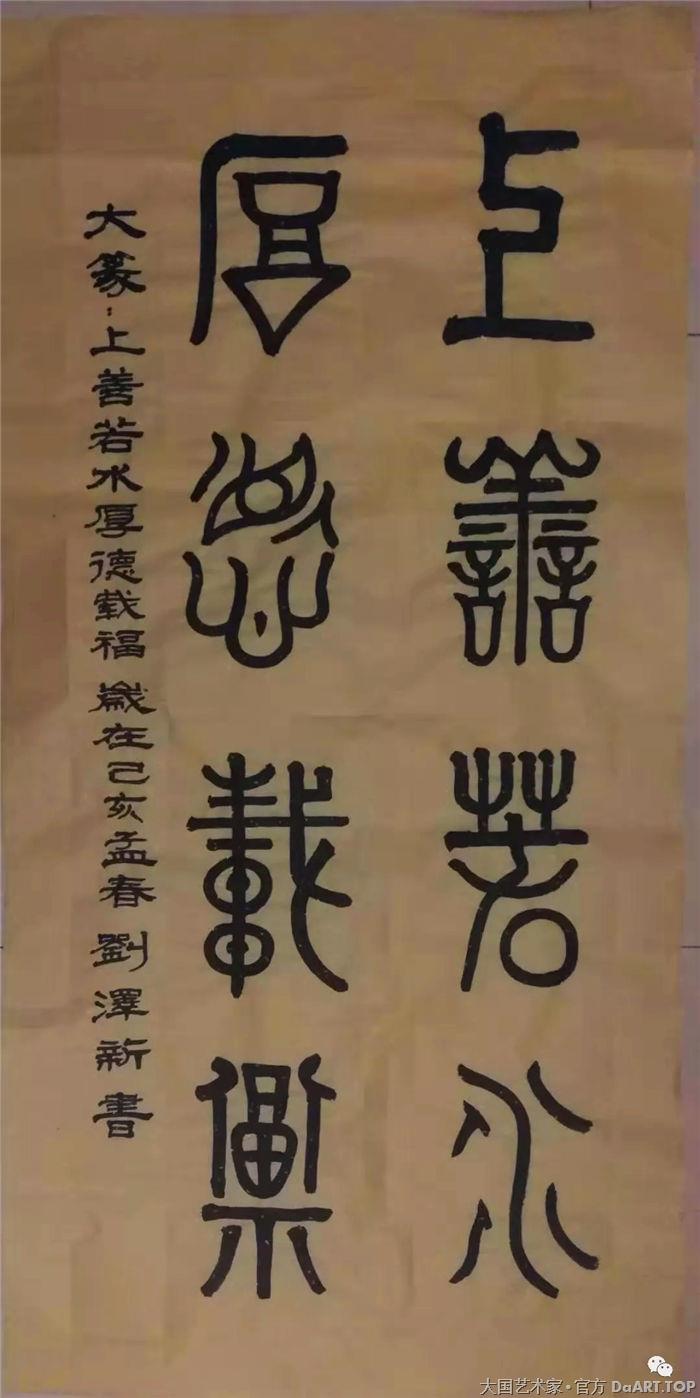 上善若水
厚德载福
大篆：上善若水厚德载福 歲在己亥孟春 劉澤新書
大国艺术家·官方 DaART.TOP